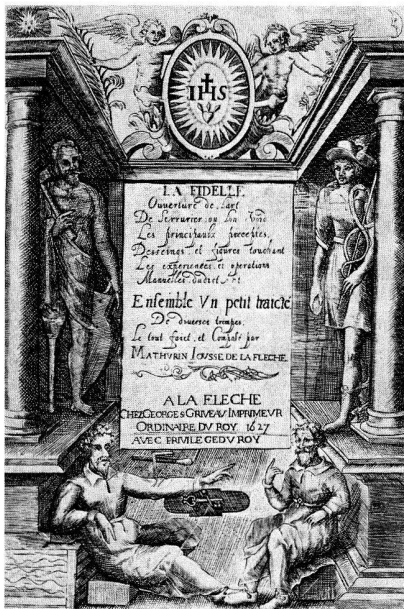 IHS
LA FIDELLE
Ouverture de l'art
De Serrurier, ou lon void
Les principaulx preceptes,
Desseings, et figures touchant
Les experiences, et operations
Manuelles dudict Art
Ensemble Vn petit traicté
De diverses trempes,
Le tout faict, et Composé par
MATHVRIN IOVSSE DE LA FLECHE
A LA FLECHE
CHEZ GEORGES GRIVEAV IMPRIMEVR
ORDINAIRE DV ROY 1627
AVEC PRIVILEGE DV ROY